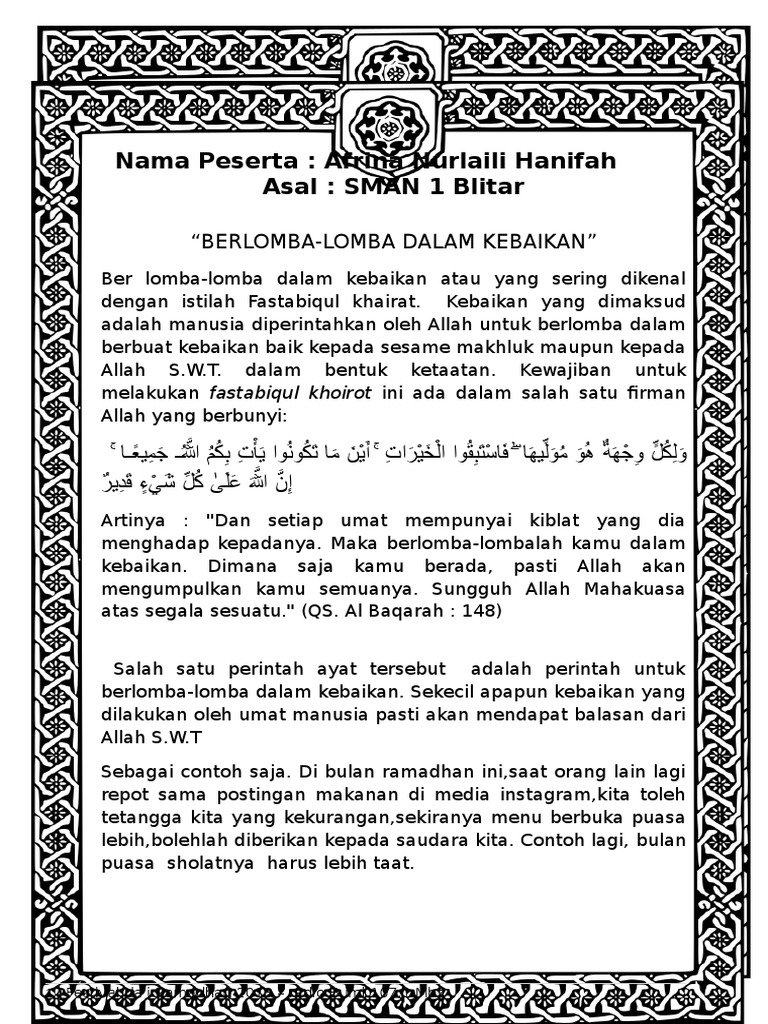 Nama Peserta : Afrina Nurlaili Hanifah
Asal : SMAN 1 Blitar
“BERLOMBA-LOMBA DALAM KEBAIKAN”
Ber lomba-lomba dalam kebaikan atau yang sering dikenal
dengan istilah Fastabiqul khairat. Kebaikan yang dimaksud
adalah manusia diperintahkan oleh Allah untuk berlomba dalam
berbuat kebaikan baik kepada sesame makhluk maupun kepada
Allah S.W.T. dalam bentuk ketaatan. Kewajiban untuk
melakukan fastabiqul khoirot ini ada dalam salah satu firman
Allah yang berbunyi:
وَلِكُلٍّ وِجْهَةٌ هُوَ مُوَلِّيهَا ۖ فَاسْتَبِقُوا الْخَيْرَاتِ ۚ أَيْنَ مَا تَكُونُوا يَأْتِ بِكُمُ اللَّهُ جَمِيعًا ۚ
إِنَّ اللَّهَ عَلَىٰ كُلِّ شَيْءٍ قَدِيرٌ
Artinya : "Dan setiap umat mempunyai kiblat yang dia
menghadap kepadanya. Maka berlomba-lombalah kamu dalam
kebaikan. Dimana saja kamu berada, pasti Allah akan
mengumpulkan kamu semuanya. Sungguh Allah Mahakuasa
atas segala sesuatu." (QS. Al Baqarah : 148)
Salah satu perintah ayat tersebut adalah perintah untuk
berlomba-lomba dalam kebaikan. Sekecil apapun kebaikan yang
dilakukan oleh umat manusia pasti akan mendapat balasan dari
Allah S.W.T
Sebagai contoh saja. Di bulan ramadhan ini,saat orang lain lagi
repot sama postingan makanan di media instagram,kita toleh
tetangga kita yang kekurangan,sekiranya menu berbuka puasa
lebih,bolehlah diberikan kepada saudara kita. Contoh lagi, bulan
puasa sholatnya harus lebih taat.